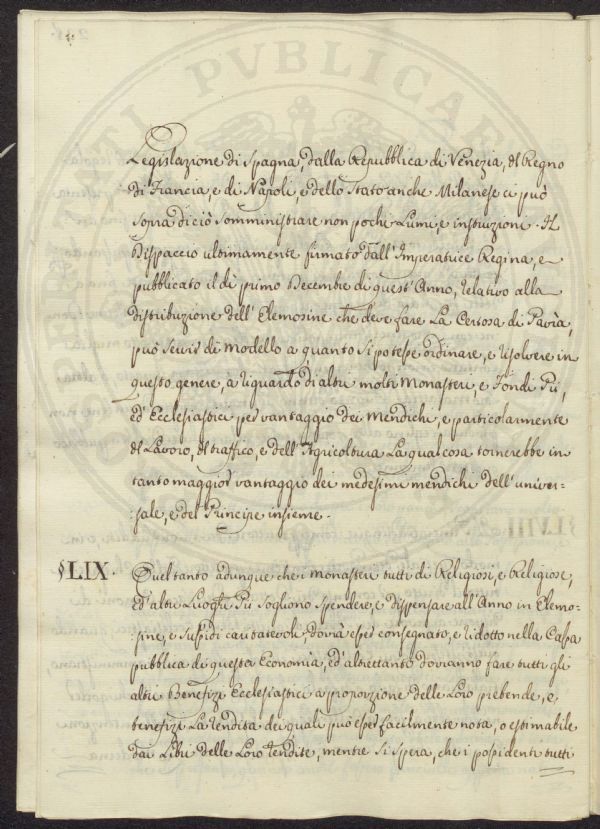 Legislazione di Spagna, dalla Repubblica di Venezia, del Regno
di Francia, e di Napoli, e dello Stato anche Milanese ci può
sopra di ciò somministrare non pochi Lumi, e instruzioni. Il
Dispaccio ultimamente firmato dall'Imperatrice Regina, e
pubblicato il dì primo Decembre di quest'Anno, relativo alla
distribuzione dell'Elemosine che deve fare La Certosa di Pavia,
può servir di modello a quanto si potesse ordinare, e risolvere in
questo genere, à riguardo di altri molti Monasteri, e Fondi Pii,
ed Ecclesiastici per vantaggio dei Mendichi, e particolarmente
del Lavoro, del traffico, e dell'Agricoltura La qual cosa tornerebbe in
tanto maggior vantaggio dei medesimi mendichi dell'univer-
:sale, e del Principe insieme.
§LIX. Quel tanto adunque che i Monasteri tutti di Religiosi, e Religiose,
ed altri Luoghi Pii sogliono spendere, e dispensare all'Anno in Elemo-
:sine, e sussidi caritatevoli, dovrà esser consegnato, e ridotto nella Cassa
pubblica di questa Economia, ed altrettanto dovranno fare tutti gli
altri Benefizi Ecclesiastici a proporzione delle Loro prebende, e
benefizi La rendita dei quali può esser facilmente nota, o estimabile
dai Libri delle Loro rendite, mentre si spera, che i possidenti tutti